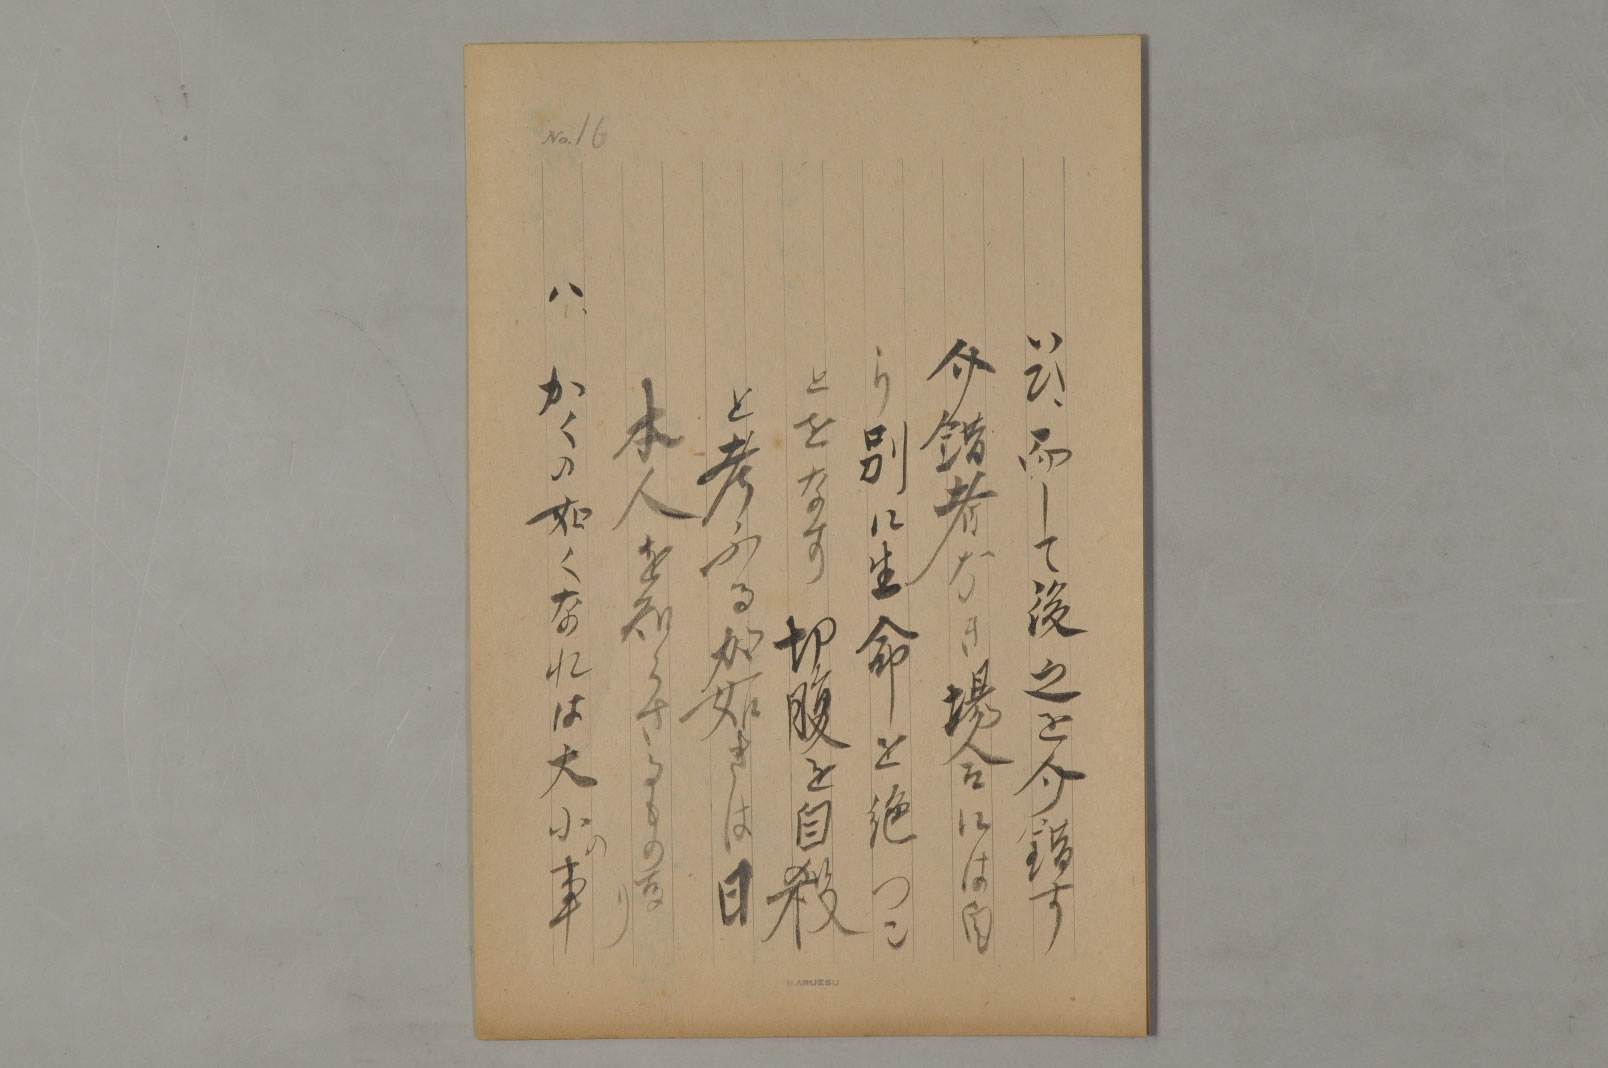 No.16
いひ、而して後之を介錯す
介錯者なき場合には自
ら別に生命を絶つこ
とをなす 切腹を自殺
と考ふる如きは日
本人を知らさるもの等なり
八、かくの如くなれは大小の事
MARUESU